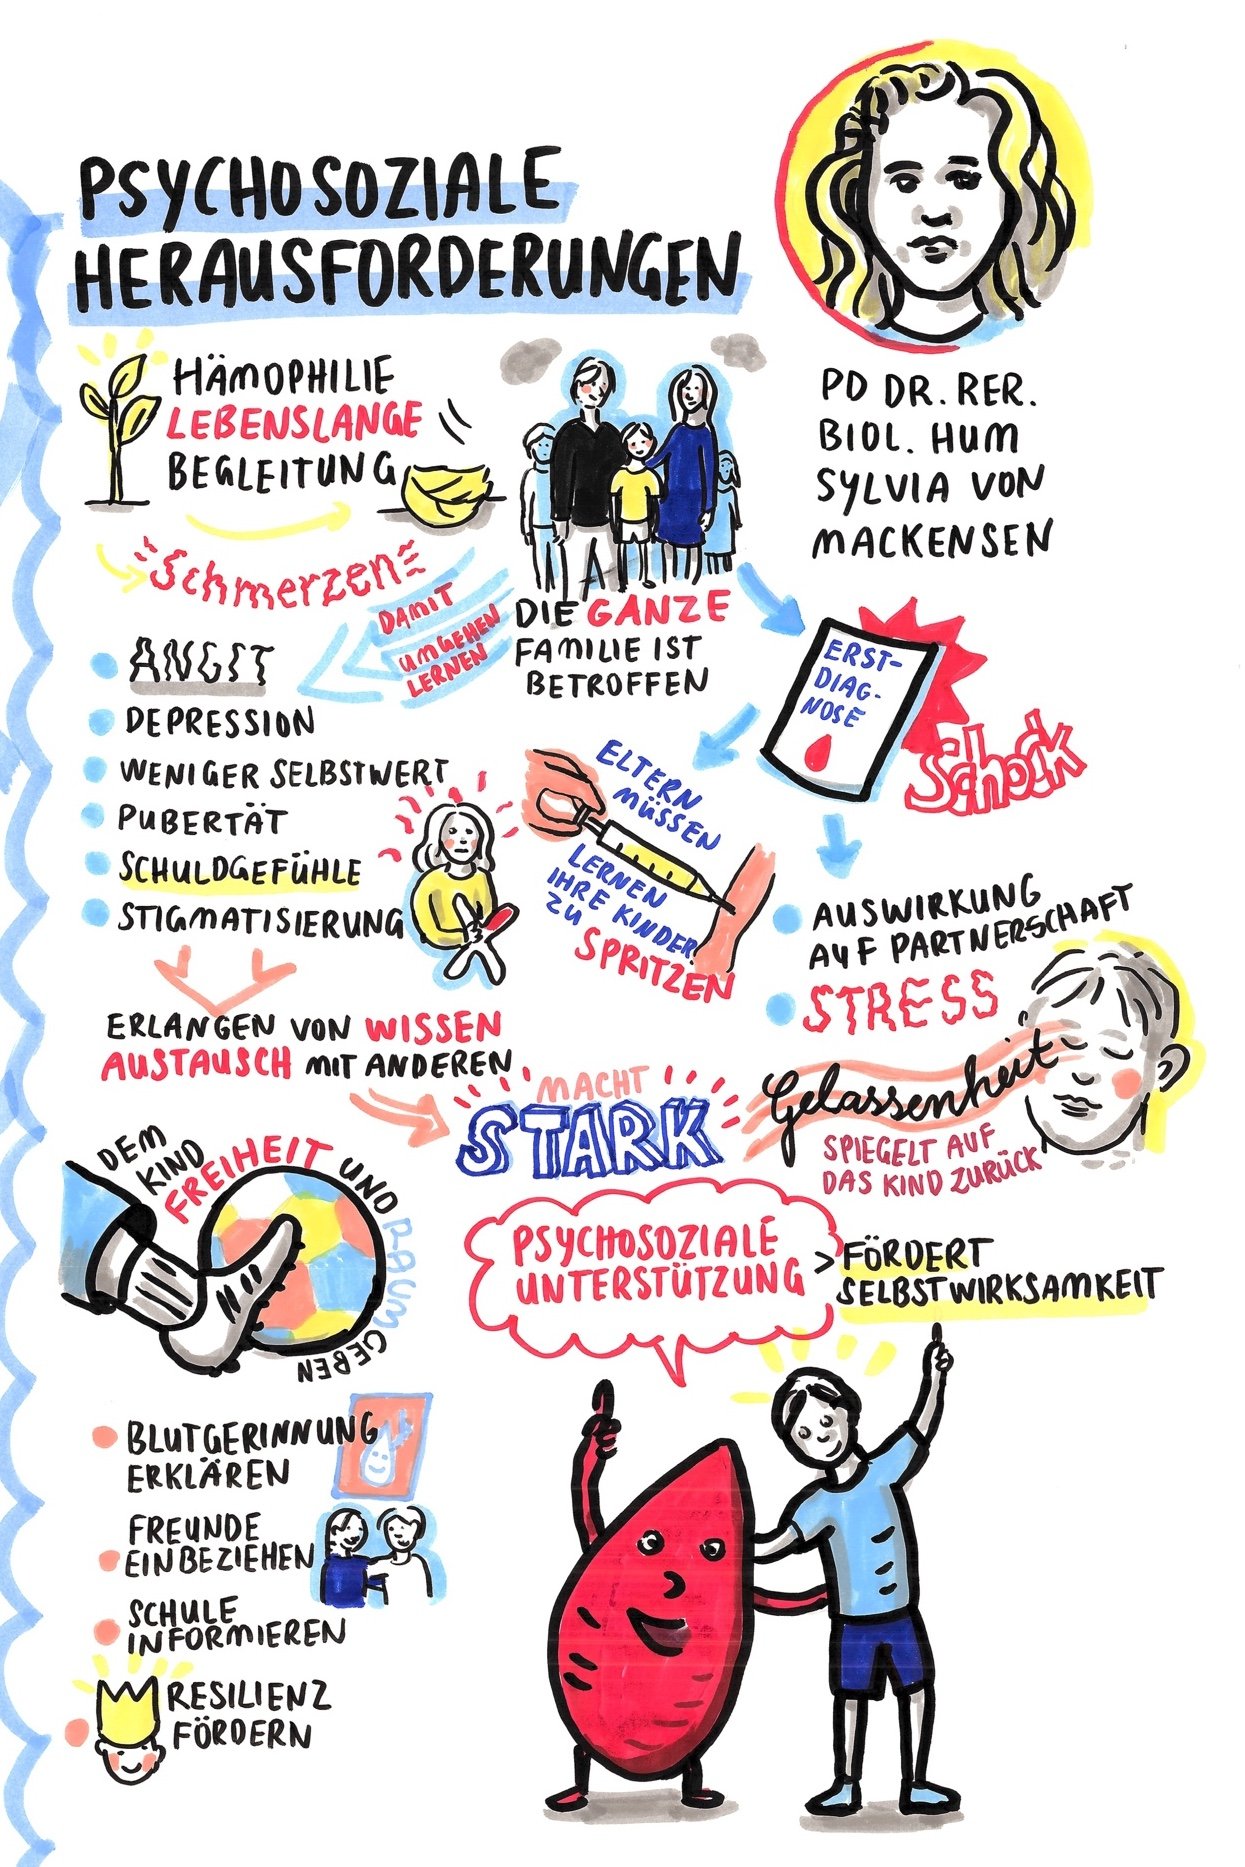 PSYCHOSOZIALE
HERAUSFORDERUNGEN
PD DR. RER.
BIOL. HUM
SYLVIA VON
MACKENSEN
HÄMOPHILIE
LEBENSLANGE
BEGLEITUNG
Schmerzen
DAMIT
UMGEHEN
LERNEN
DIE GANZE
FAMILIE IST
BETROFFEN
ERST-
DIAG-
NOSE
Schock
ANGST
DEPRESSION
WENIGER SELBSTWERT
PUBERTÄT
SCHULDGEFÜHLE
STIGMATISIERUNG
ELTERN
MÜSSEN
LERNEN
IHRE KINDER
ZU
SPRITZEN
AUSWIRKUNG
AUF PARTNERSCHAFT
STRESS
ERLANGEN VON WISSEN
AUSTAUSCH MIT ANDEREN
MACHT
STARK
Gelassenheit
SPIEGELT AUF
DAS KIND ZURÜCK
DEM
KIND
FREIHEIT UND
RAUM
GEBEN
PSYCHOSOZIALE
UNTERSTÜTZUNG
> FÖRDERT
SELBSTWIRKSAMKEIT
BLUTGERINNUNG
ERKLÄREN
FREUNDE
EINBEZIEHEN
SCHULE
INFORMIEREN
RESILIENZ
FÖRDERN